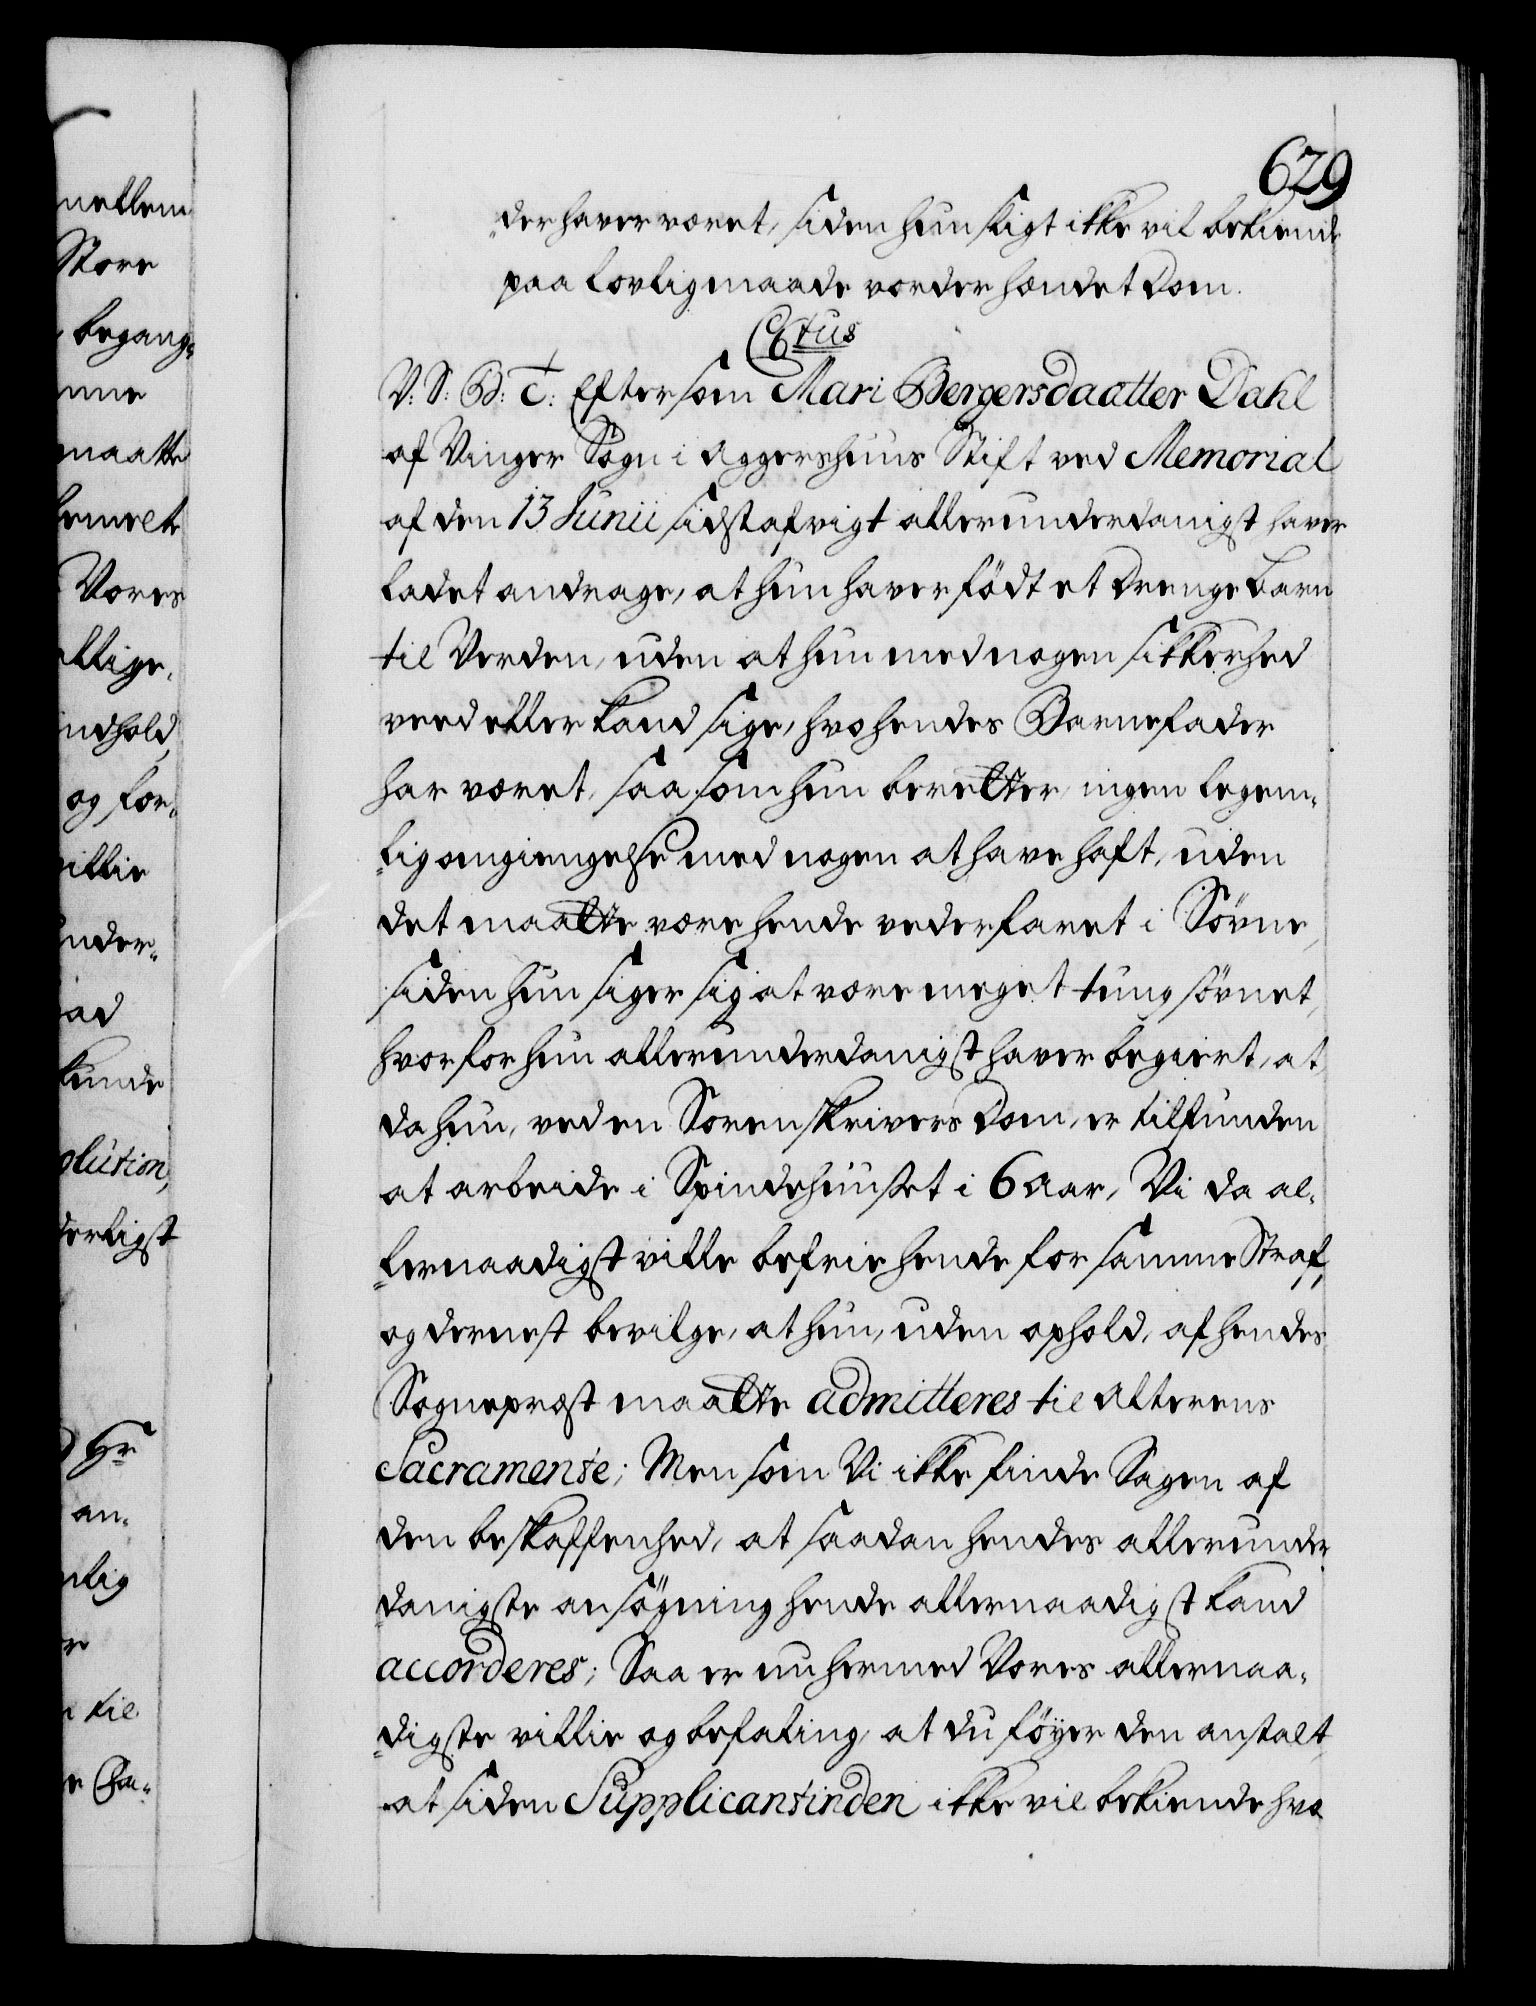 629
der haver været, siden hun sligt ikke vil bekiende
paa lovlig maade vorder hændet Dom.
Ctus
V: S: B: T: Eftersom Mari Bergersdaatter Dahl
af Vinger Sogn i Aggershuus Stift ved Memorial
af den 13 Junii sidstafvigt allerunderdanigst haver
ladet andrage, at hun haver födt et Drenge Barn
til Verden, uden at hun med nogen sikkerhed
veed eller kand sige, hvo hendes Barnefader
har været, saasom hun beretter, ingen legem-
lig omgiengelse med nogen at have haft, uden
det maatte være hende vederfaret i Sövne,
siden hun siger sig at være meget tungsövnet,
hvorfor hun allerunderdanigst haver begiert, at
da hun, ved en Sorenskrivers Dom, er tilfunden
at arbeide i Spindehuuset i 6 Aar, Vi da al-
lernaadigst ville befrie hende for samme Straf,
og dernest bevilge, at hun, uden ophold, af hendes
Sognepræst maatte admitteres til Alterens
Sacramente; Men som Vi ikke finde Sagen af
den beskaffenhed, at saadan hendes allerunder-
danigste ansögning hende allernaadigst kand
accorderes; Saa er nu hermed Vores allernaa-
digste villie og befaling, at du föyer den anstalt
at siden Supplicantinden ikke vil bekiende hvo